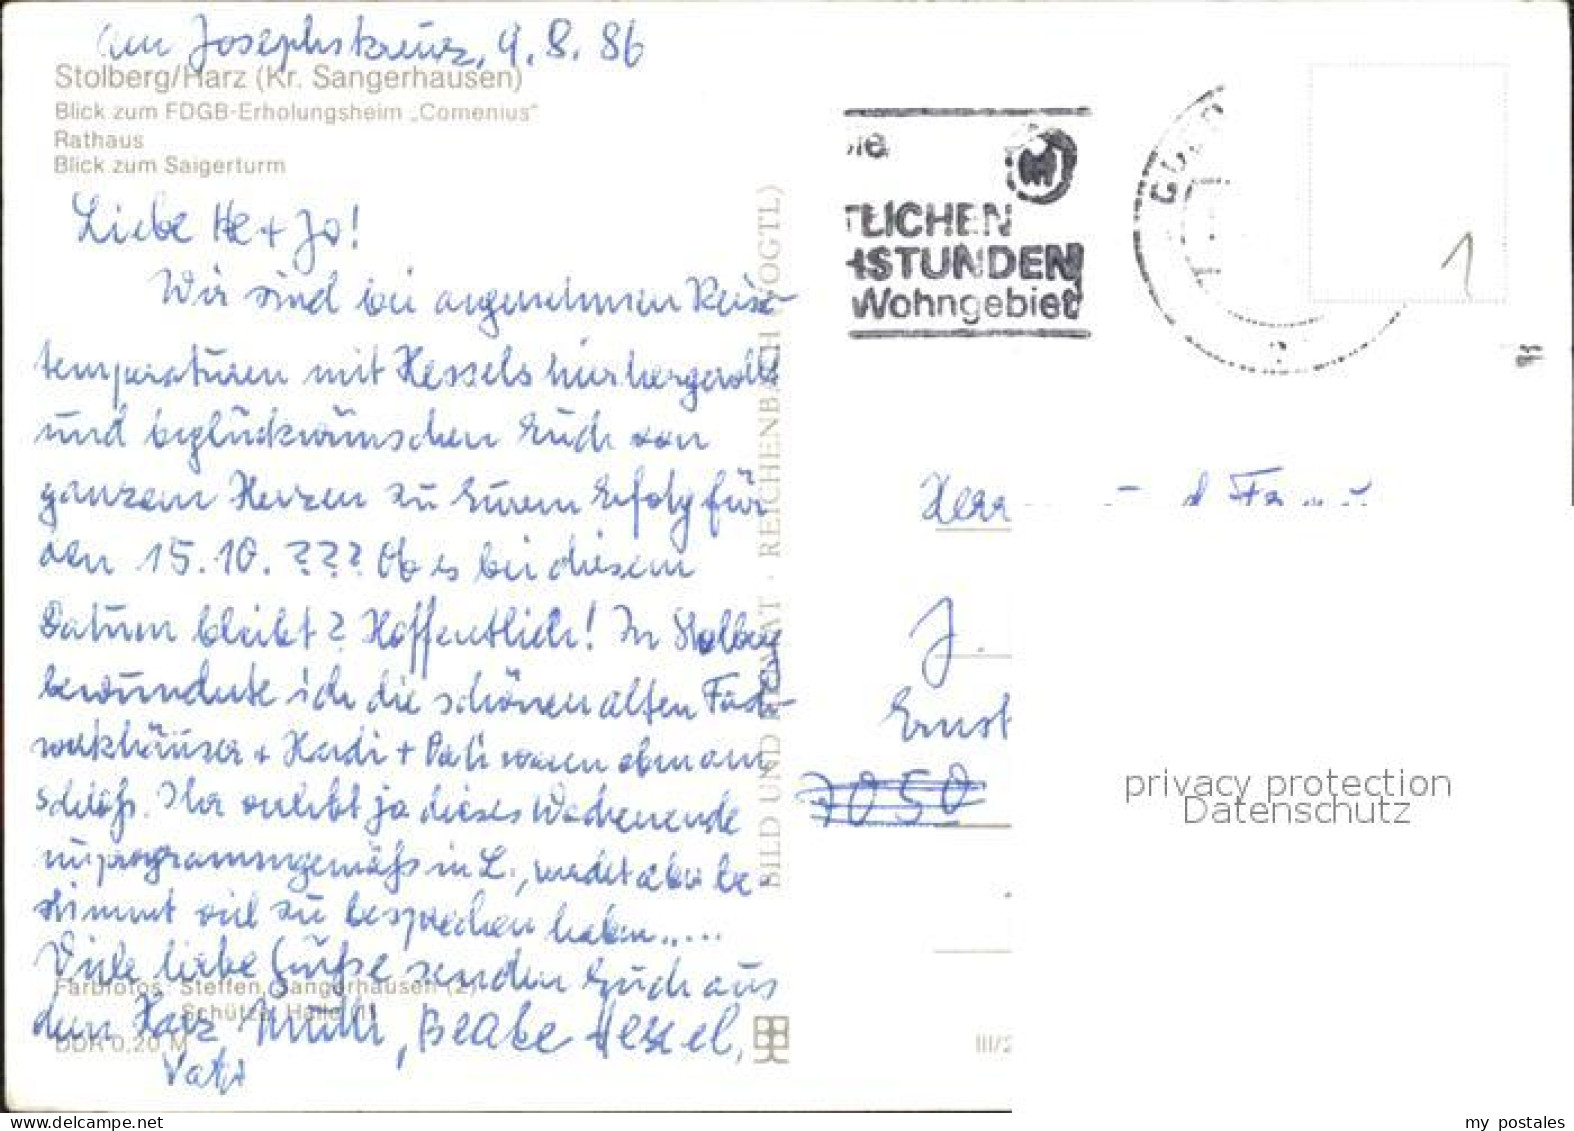 am Josephskreuz, 9.8.86
Stolberg/Harz (Kr. Sangerhausen)
Blick zum FDGB-Erholungsheim „Comenius"
Rathaus
Blick zum Saigerturm
Liebe He + Jo!
Wir sind bei angenehmen Reise-
temperaturen mit Hessels hierhergerollt
und beglückwünschen Euch von
ganzem Herzen zu Eurem Erfolg für
den 15.10. ??? Ob es bei diesem
Datum bleibt? Hoffentlich! In Stolberg
bewunderte ich die schönen alten Fach-
werkhäuser + Hardi + Vati waren oben am
Schloß. Ihr erlebt ja dieses Wochenende
unprogrammgemäß in L., werdet aber be-
stimmt viel zu besprechen haben.....
Viele liebe Grüße senden Euch aus
dem Harz Mutti, Beate Hessel,
Vati
Farbfotos: Steffen, Sangerhausen (2)
Schütze, Halle (1)
DDR 0,20 M
BILD UND HEIMAT · REICHENBACH (VOGTL)
TLICHEN
HSTUNDEN
Wohngebiet
1
Herr
J.
Ernst
7050
III/
privacy protection
Datenschutz
www.mypostales.com
my postales